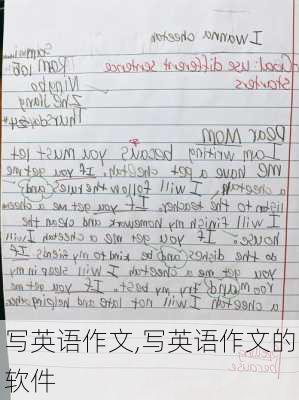 I wanna cheetah
Goal: use different sentence
starters
Rom 105
Ningbo
Zhe Jiang
Thursday 24th
Dear Mom
I am writing becaus you must let
me have a pet cheetah. If you get me
a cheetah I will follow the rules (and)
listen to the teacher. If you get me a
I will finish my homework and clean the
house. If you get me a cheetah I will
do the dishes (and) be kind to my friends If
you get me a cheetah I will sleep in my
room (and) try my best. If you get me
a cheetah I will not late and helping
写英语作文,写英语作文的
软件
because